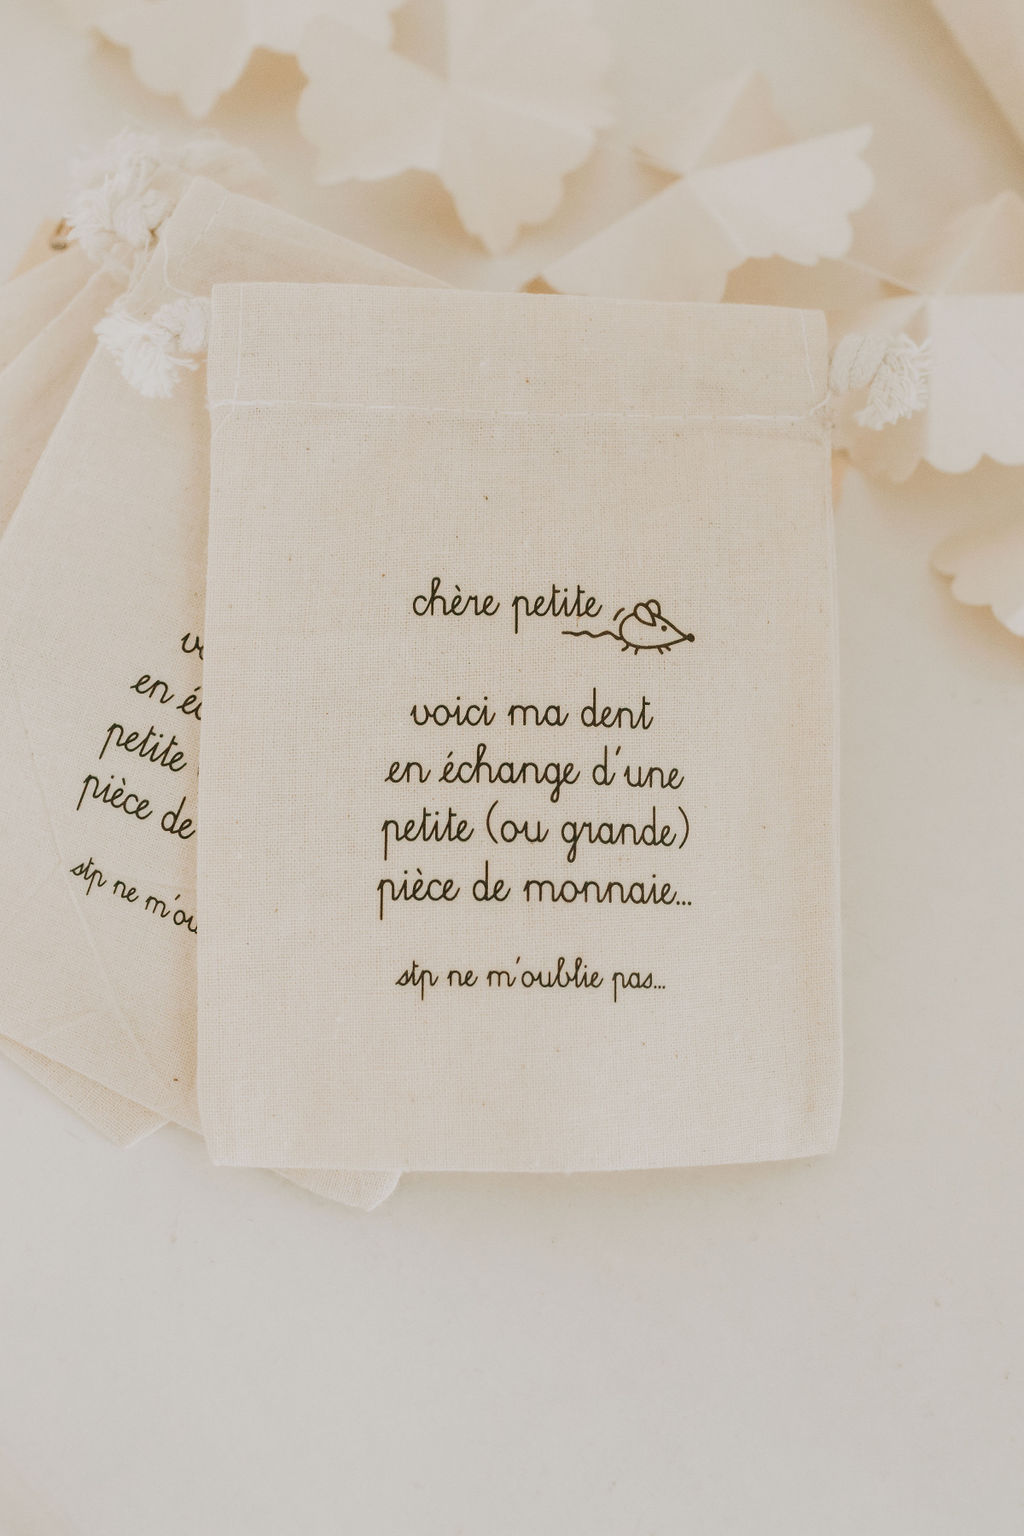 chère petite
voici ma dent
en échange d'une
petite (ou grande)
pièce de monnaie...
stp ne m'oublie pas...
en
petite
pièce de
stp ne